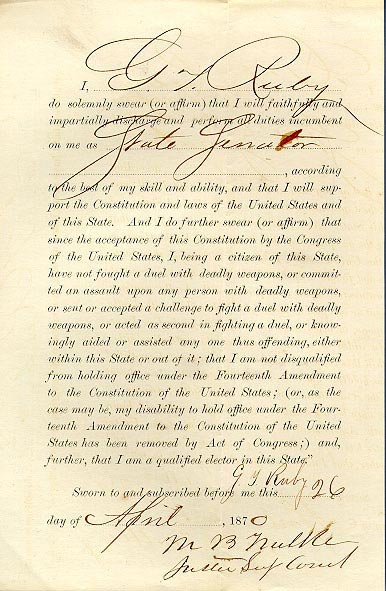 I, G T Ruby
do solemnly swear (or affirm) that I will faithfully and
impartially discharge and perform all duties incumbent
on me as State Senator
, according
to the best of my skill and ability, and that I will sup-
port the Constitution and laws of the United States and
of this State. And I do further swear (or affirm) that
since the acceptance of this Constitution by the Congress
of the United States, I, being a citizen of this State,
have not fought a duel with deadly weapons, or commit-
ted an assault upon any person with deadly weapons,
or sent or accepted a challenge to fight a duel with deadly
weapons, or acted as second in fighting a duel, or know-
ingly aided or assisted any one thus offending, either
within this State or out of it; that I am not disqualified
from holding office under the Fourteenth Amendment
to the Constitution of the United States; (or, as the
case may be, my disability to hold office under the Four-
teenth Amendment to the Constitution of the United
States has been removed by Act of Congress;) and,
further, that I am a qualified elector in this State."
G T Ruby
Sworn to and subscribed before me this 26
day of April, 1870
M B
Court